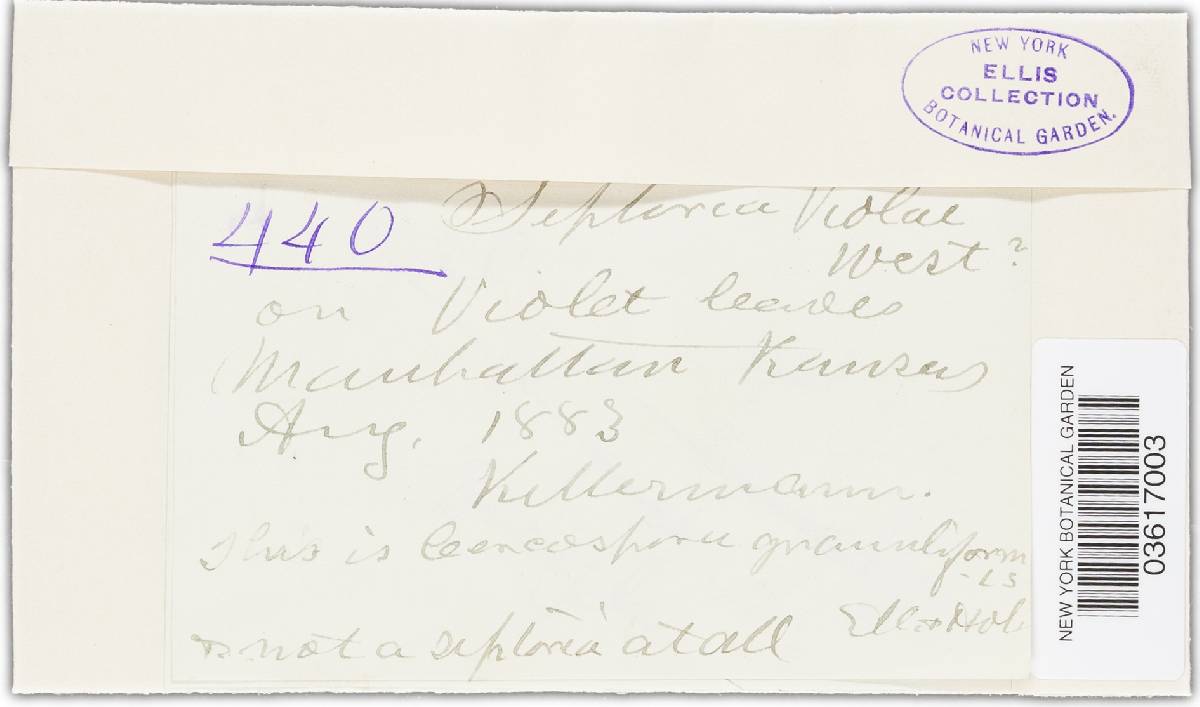 NEW YORK
ELLIS
COLLECTION
BOTANICAL GARDEN.
440
Septoria Violae
West?
on Violet leaves
Manhattan Kansas
Aug. 1883
Kellermann.
This is Cercospora granuliform
-is
Ell & Hol
& not a septoria at all
NEW YORK BOTANICAL GARDEN
03617003